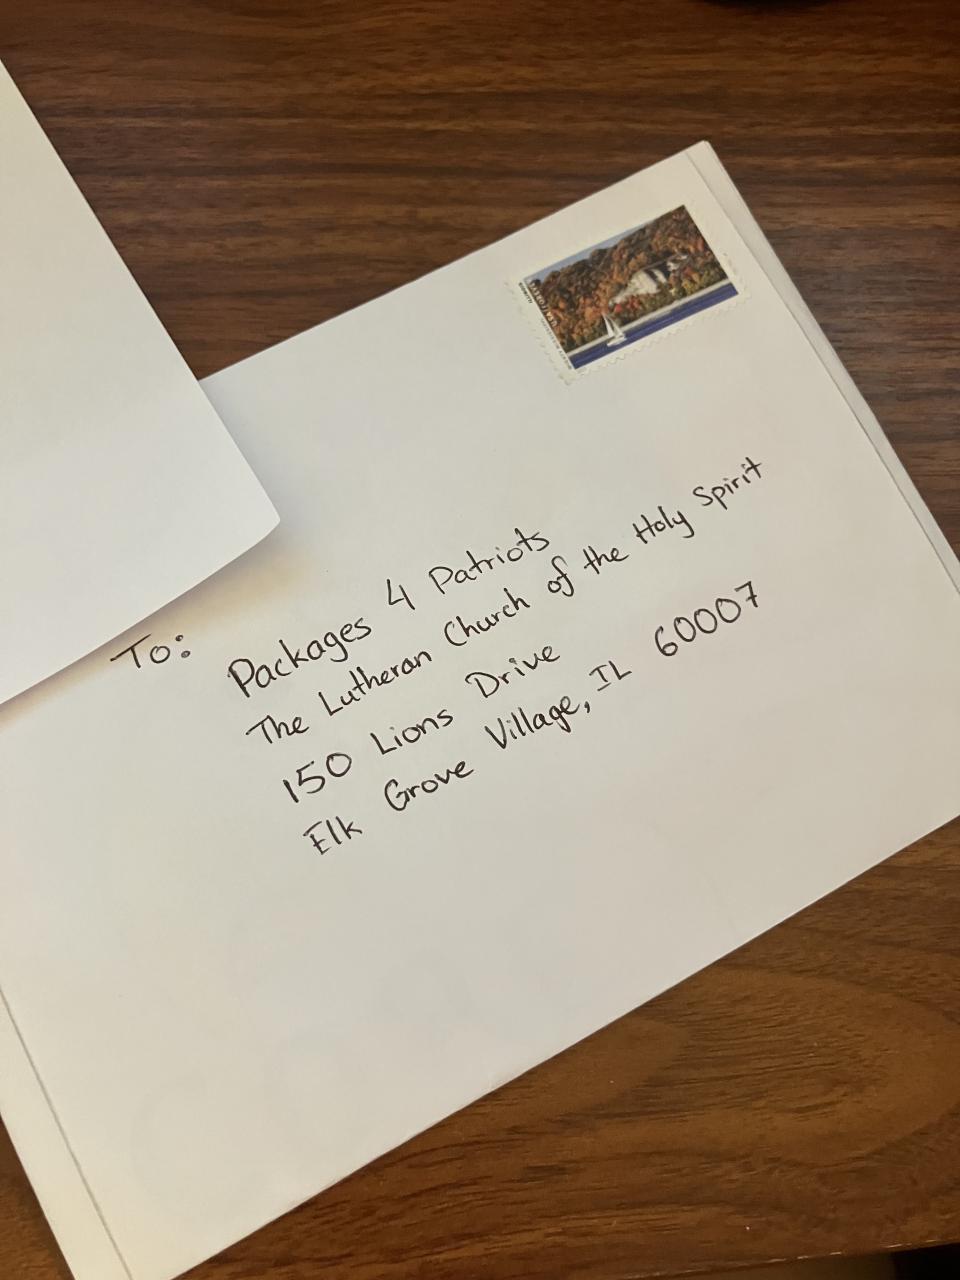 To:
Packages 4 Patriots
The Lutheran Church of the Holy Spirit
150 Lions Drive
Elk Grove Village, IL 60007